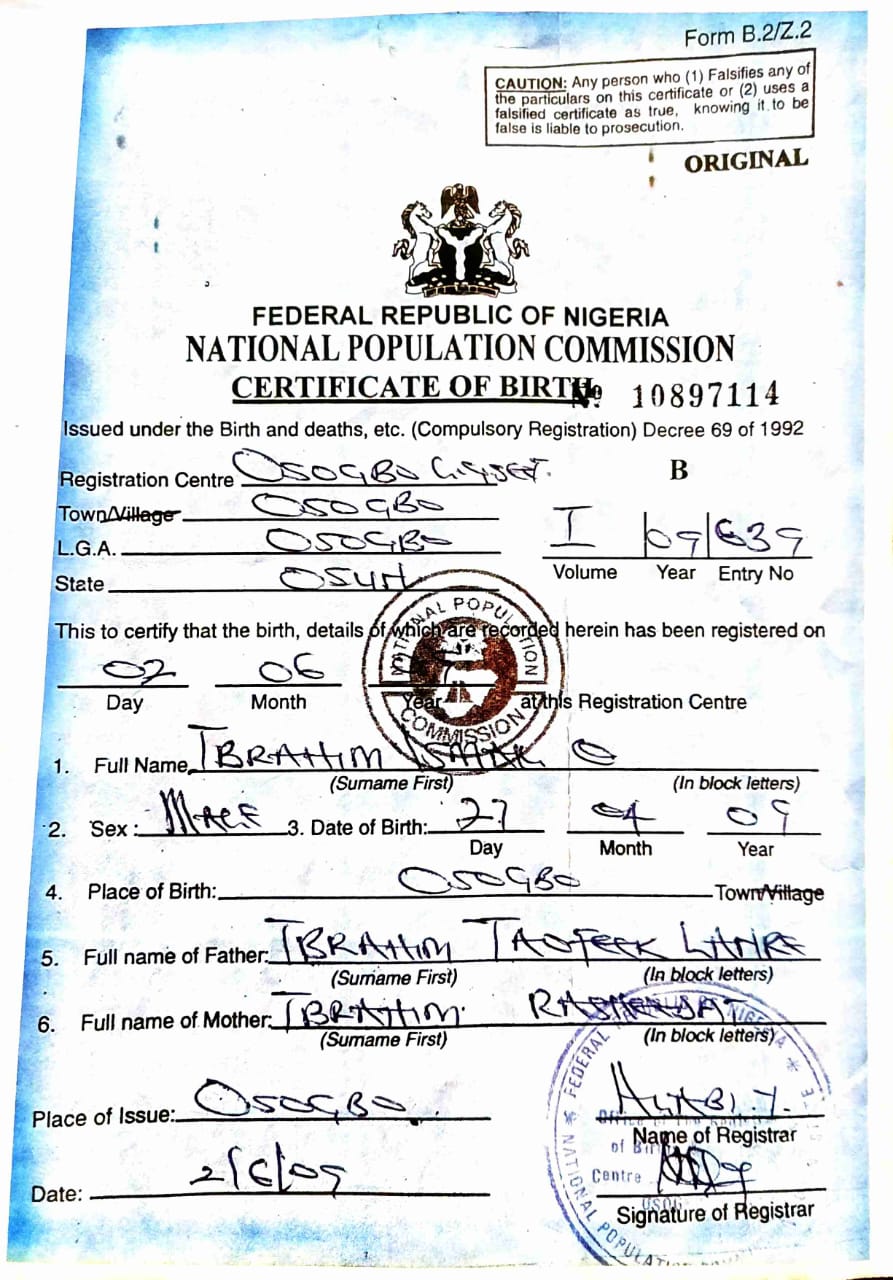 Form B.2/Z.2
CAUTION: Any person who (1) Falsifies any of
the particulars on this certificate or (2) uses a
falsified certificate as true, knowing it to be
false is liable to prosecution.
ORIGINAL
FEDERAL REPUBLIC OF NIGERIA
NATIONAL POPULATION COMMISSION
CERTIFICATE OF BIRTH No 10897114
Issued under the Birth and deaths, etc. (Compulsory Registration) Decree 69 of 1992
Registration Centre OSOGBO B
Town/Village OSOGBO
L.G.A. OSOGBO I 09 639
Volume Year Entry No
State OSUN
NATIONAL POPULATION COMMISSION
This to certify that the birth, details of which are recorded herein has been registered on
02 06
Day Month Year at this Registration Centre
1. Full Name IBRAHIM O
(Surname First) (In block letters)
2. Sex: MALE 3. Date of Birth: 27 04 09
Day Month Year
4. Place of Birth: OSOGBO Town/Village
5. Full name of Father: IBRAHIM TAOFEEK LANRE
(Surname First) (In block letters)
6. Full name of Mother: IBRAHIM
(Surname First) (In block letters)
Place of Issue: OSOGBO
Name of Registrar
Date: 2/6/09
Signature of Registrar